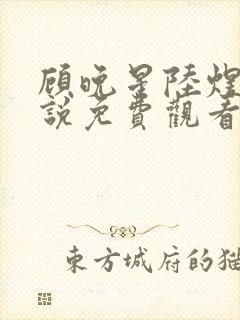 顾晚星陸煌
說免費觀看
東方城府的猫